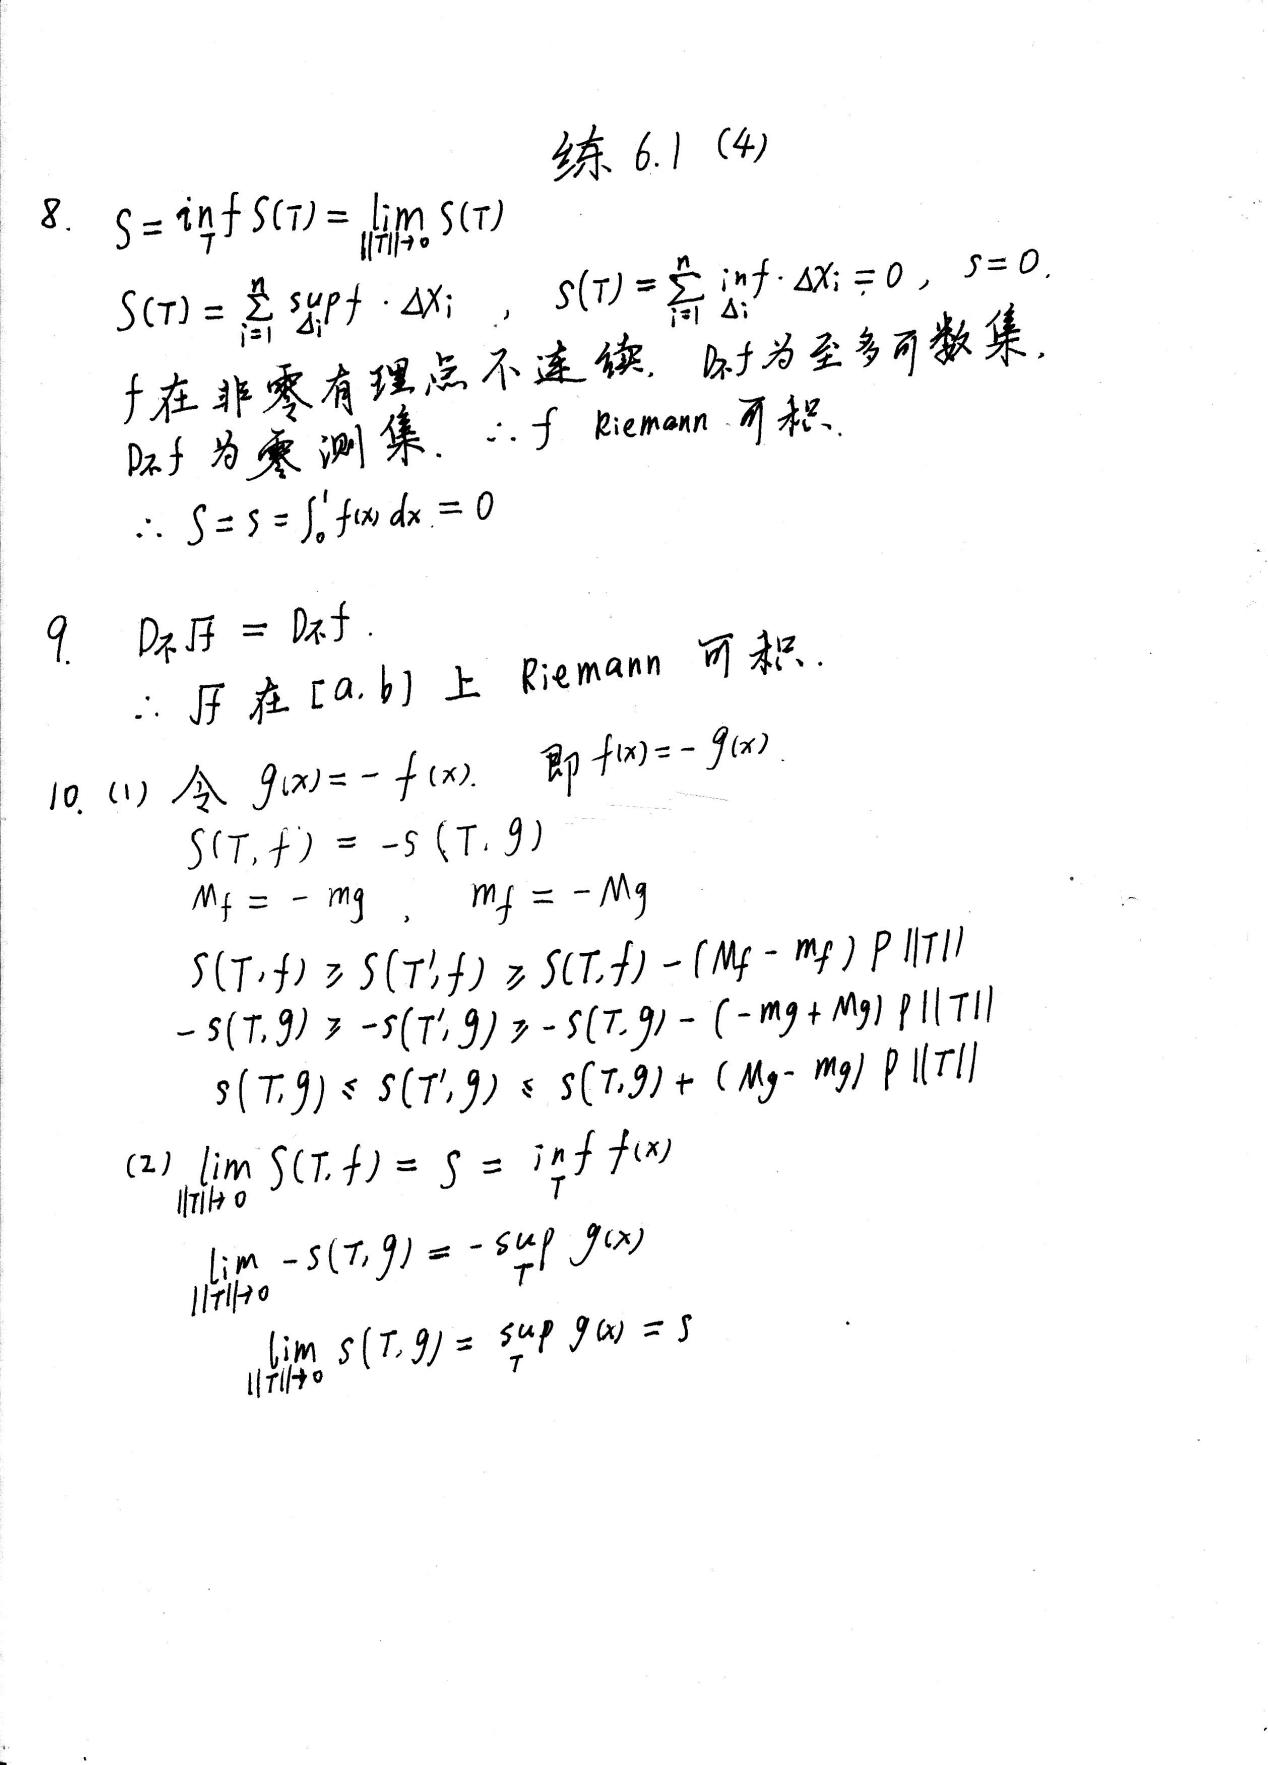 练 6.1 (4)
8. S = inf_T S(T) = lim_{||T||→0} S(T)
S(T) = Σ_{i=1}^{n} sup_{Δi} f · ΔXi , s(T) = Σ_{i=1}^{n} inf_{Δi} f · ΔXi = 0 , s = 0.
f 在非零有理点不连续. D不f 为至多可数集.
D不f 为零测集. ∴ f Riemann 可积.
∴ S = s = ∫_0^1 f(x) dx = 0
9. D不√f = D不f .
∴ √f 在 [a,b] 上 Riemann 可积.
10. (1) 令 g(x) = - f(x). 即 f(x) = - g(x).
S(T, f) = -s(T, g)
Mf = - mg , mf = - Mg
S(T, f) ≥ S(T', f) ≥ S(T, f) - (Mf - mf) P ||T||
- s(T, g) ≥ -s(T', g) ≥ - s(T, g) - (-mg + Mg) P ||T||
s(T, g) ≤ s(T', g) ≤ s(T, g) + (Mg - mg) P ||T||
(2) lim_{||T||→0} S(T, f) = S = inf_T f(x)
lim_{||T||→0} -s(T, g) = - sup_T g(x)
lim_{||T||→0} s(T, g) = sup_T g(x) = s